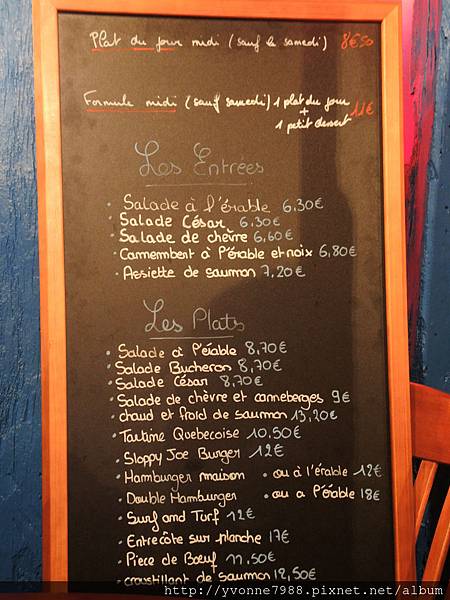 Plat du jour midi (sauf le samedi) 8€50
Formule midi (sauf samedi) 1 plat du jour 11€
+
1 petit dessert
Les Entrées
• Salade à l'érable 6,30€
• Salade César 6,30€
• Salade de chèvre 6,60€
• Camembert à l'érable et noix 6,80€
• Assiette de saumon 7,20€
Les Plats
• Salade à l'érable 8,70€
• Salade Bucheron 8,70€
• Salade César 8,70€
• Salade de chèvre et canneberges 9€
• chaud et froid de saumon 13,20€
• Tartine Quebecoise 10,50€
• Sloppy Joe Burger 12€
• Hamburger maison • ou à l'érable 12€
• Double Hamburger • ou a l'érable 18€
• Surf and Turf 12€
• Entrecôte sur planche 17€
• Piece de Bœuf 11,50€
• croustillant de saumon 12,50€
http://yvonne7988.pixnet.net/album